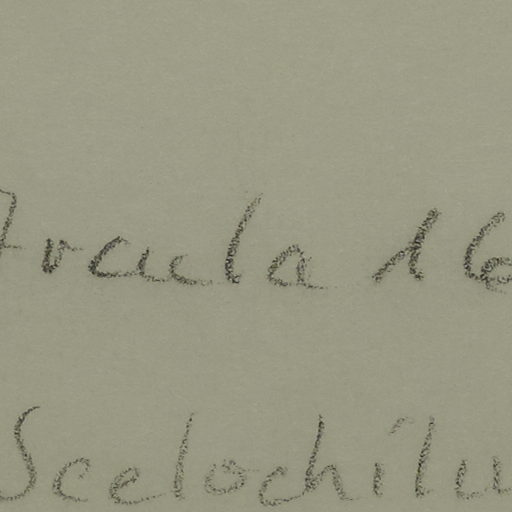 Dracula 16
Scelochilu